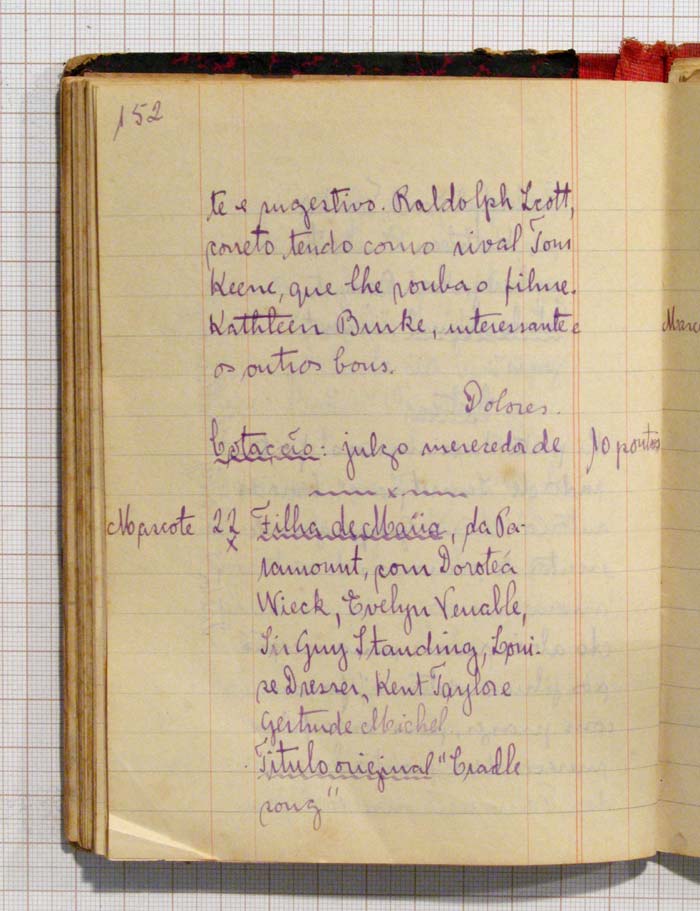 152
te e sugestivo. Raldolph Scott,
correto, tendo como rival Tom
Keene, que lhe rouba o filme.
Kathleen Burke, interessante e
os outros bons.
Dolores.
Cotação: julgo mereceda de 10 pontos
x
Mascote 22 Filha de Maria, da Pa-
x
ramount, com Dorotea
Wieck, Evelyn Venable,
Sir Guy Standing, Loui-
se Dresser, Kent Taylor e
Gertrude Michel
Titulo original "Cradle
song"